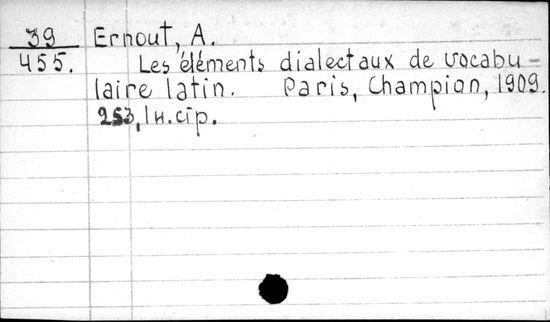 39 Ernout, A.
455. Les éléments dialectaux de vocabu-
laire latin. Paris, Champion, 1909.
253, 1 н. стр.